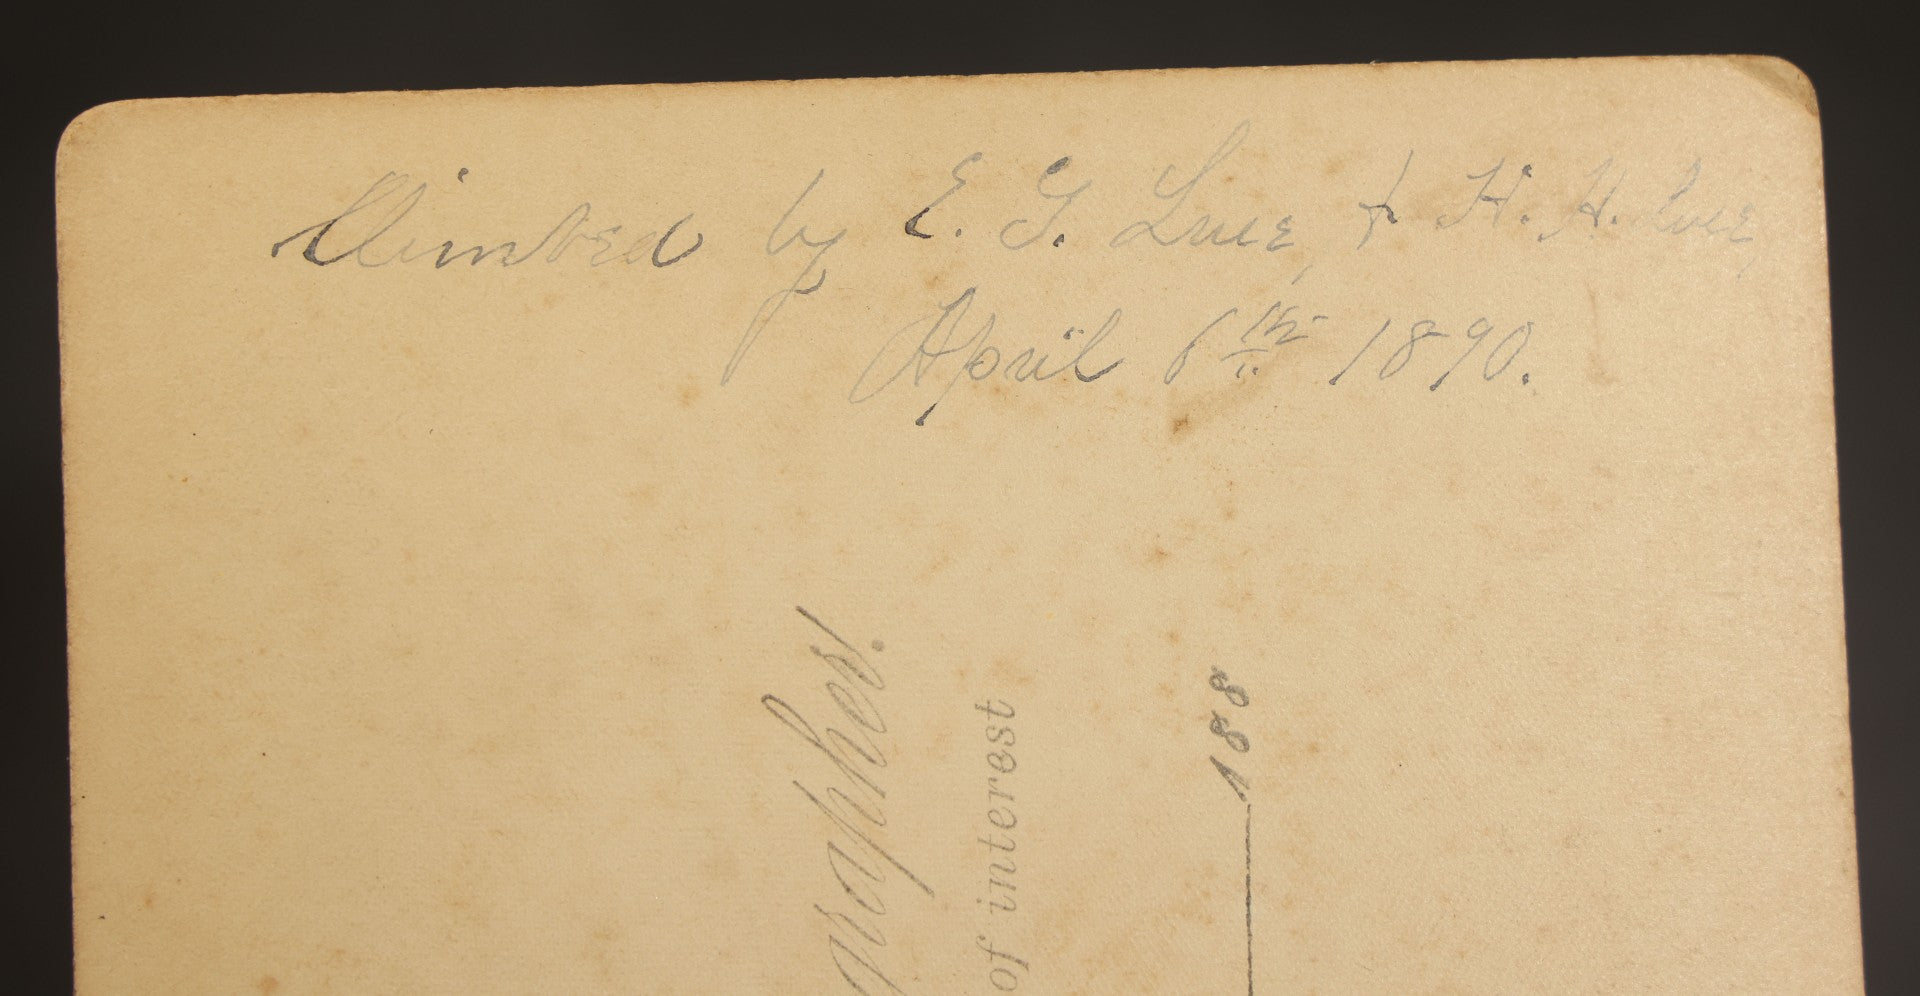 Climbed by E. G. Luce, & H. H. Luce,
April 6th 1890.
grapher.
of interest
188